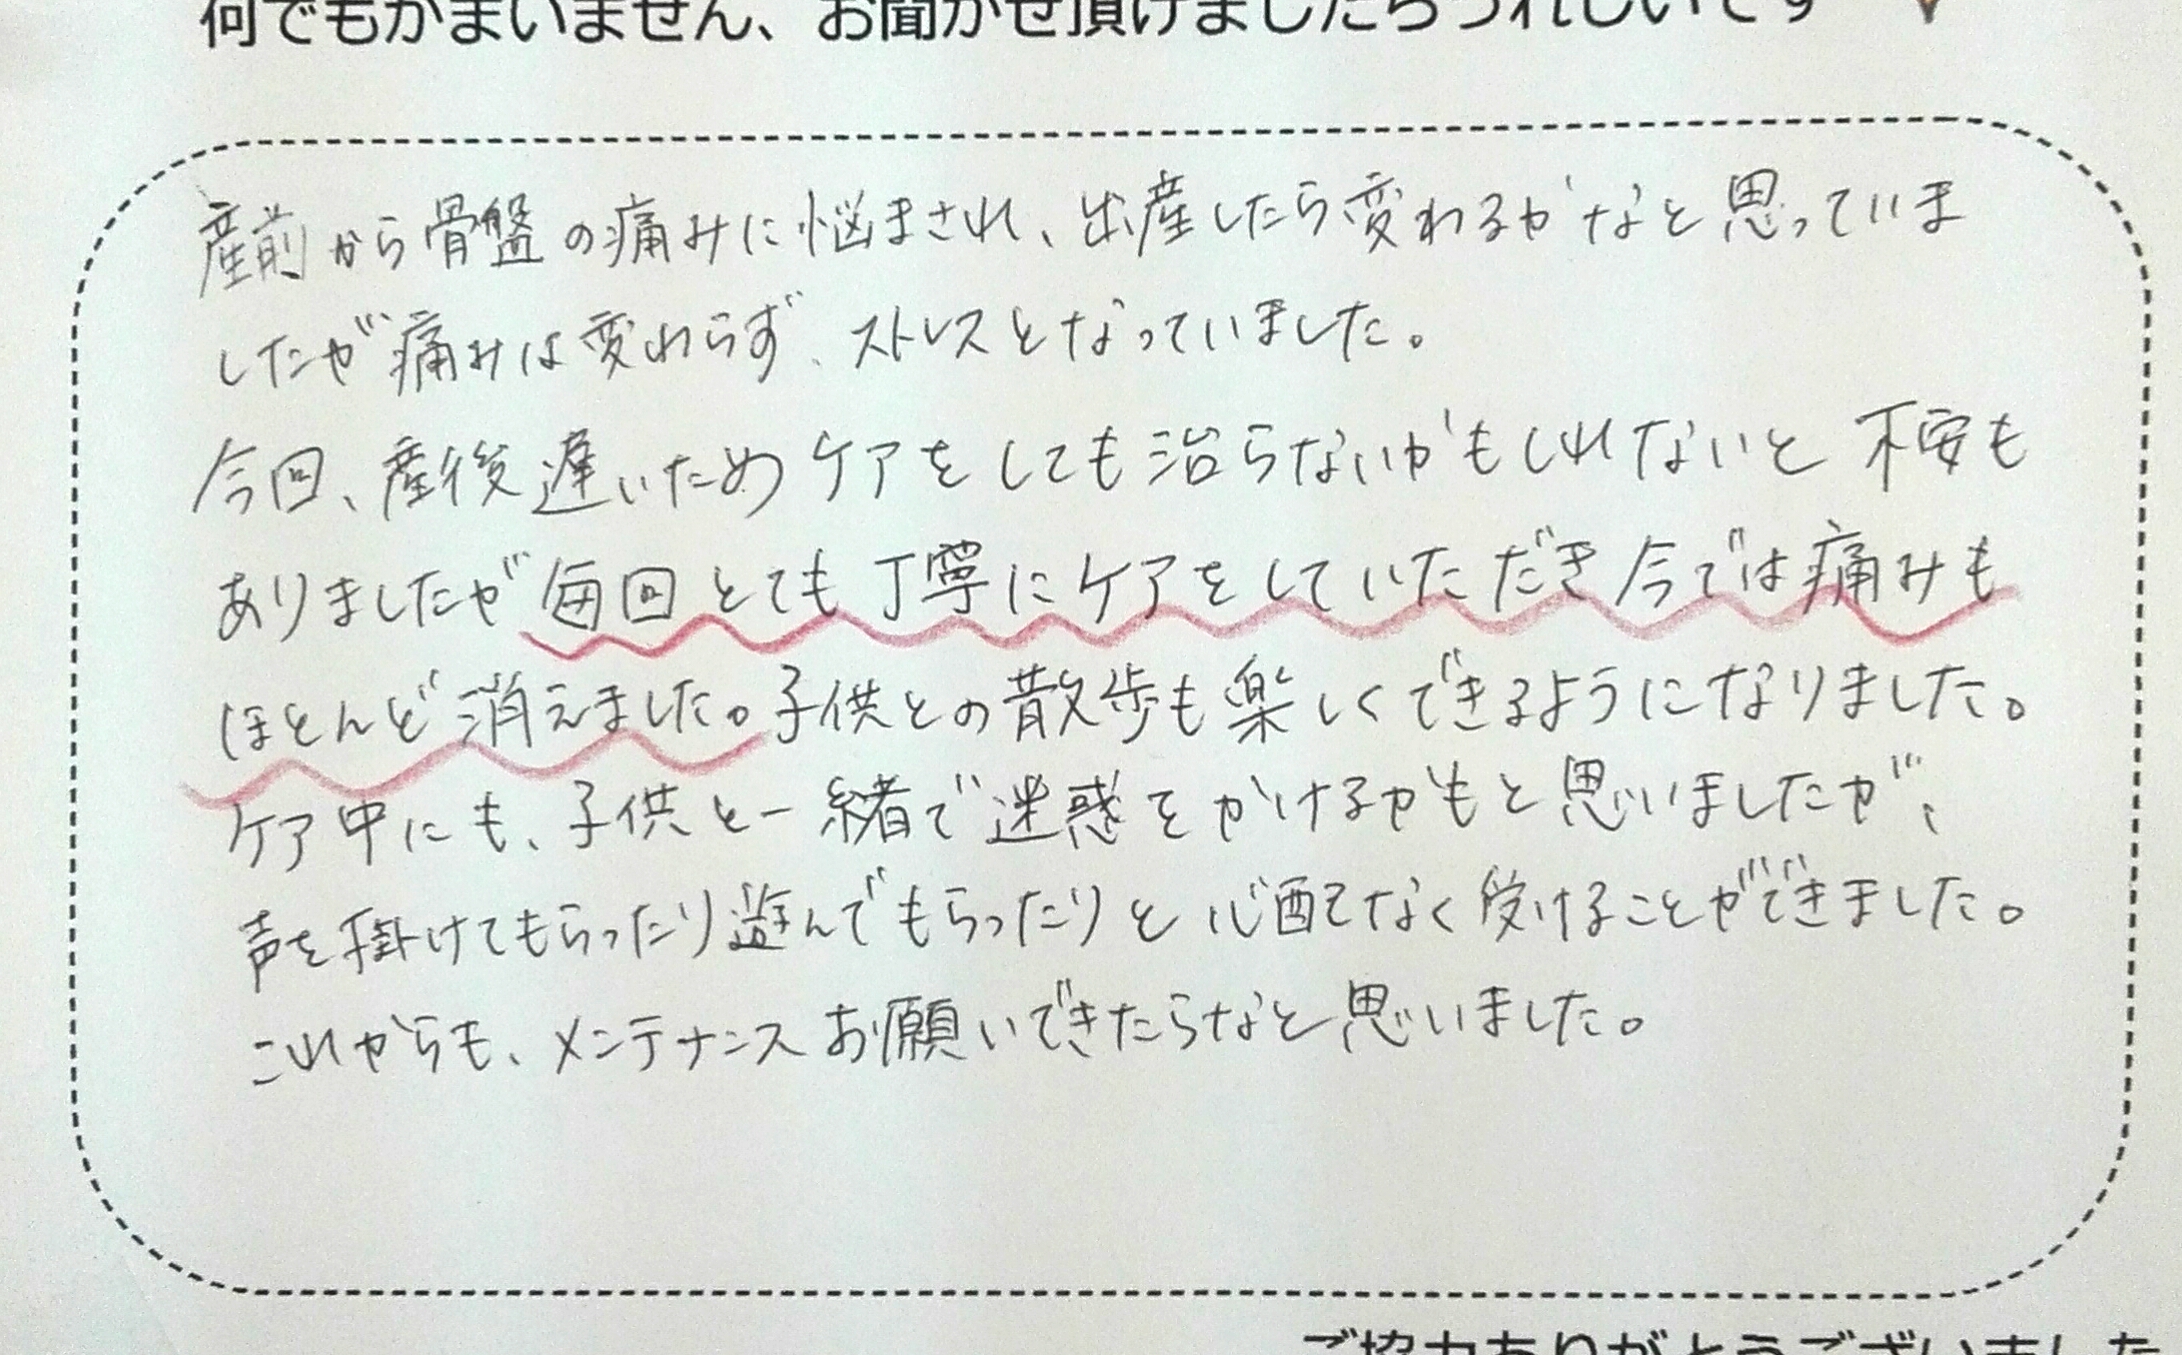 何でもかまいません、お聞かせ頂けましたらうれしいです
産前から骨盤の痛みに悩まされ、出産したら変わるかなと思っていま
したが痛みは変わらず、ストレスとなっていました。
今回、産後遅いためケアをしても治らないかもしれないと不安も
ありましたが毎回とても丁寧にケアをしていただき今では痛みも
ほとんど消えました。子供との散歩も楽しくできるようになりました。
ケア中にも、子供と一緒で迷惑をかけるかもと思いましたが、
声を掛けてもらったり遊んでもらったりと心配なく受けることができました。
これからも、メンテナンスお願いできたらなと思いました。
ご協力ありがとうございました